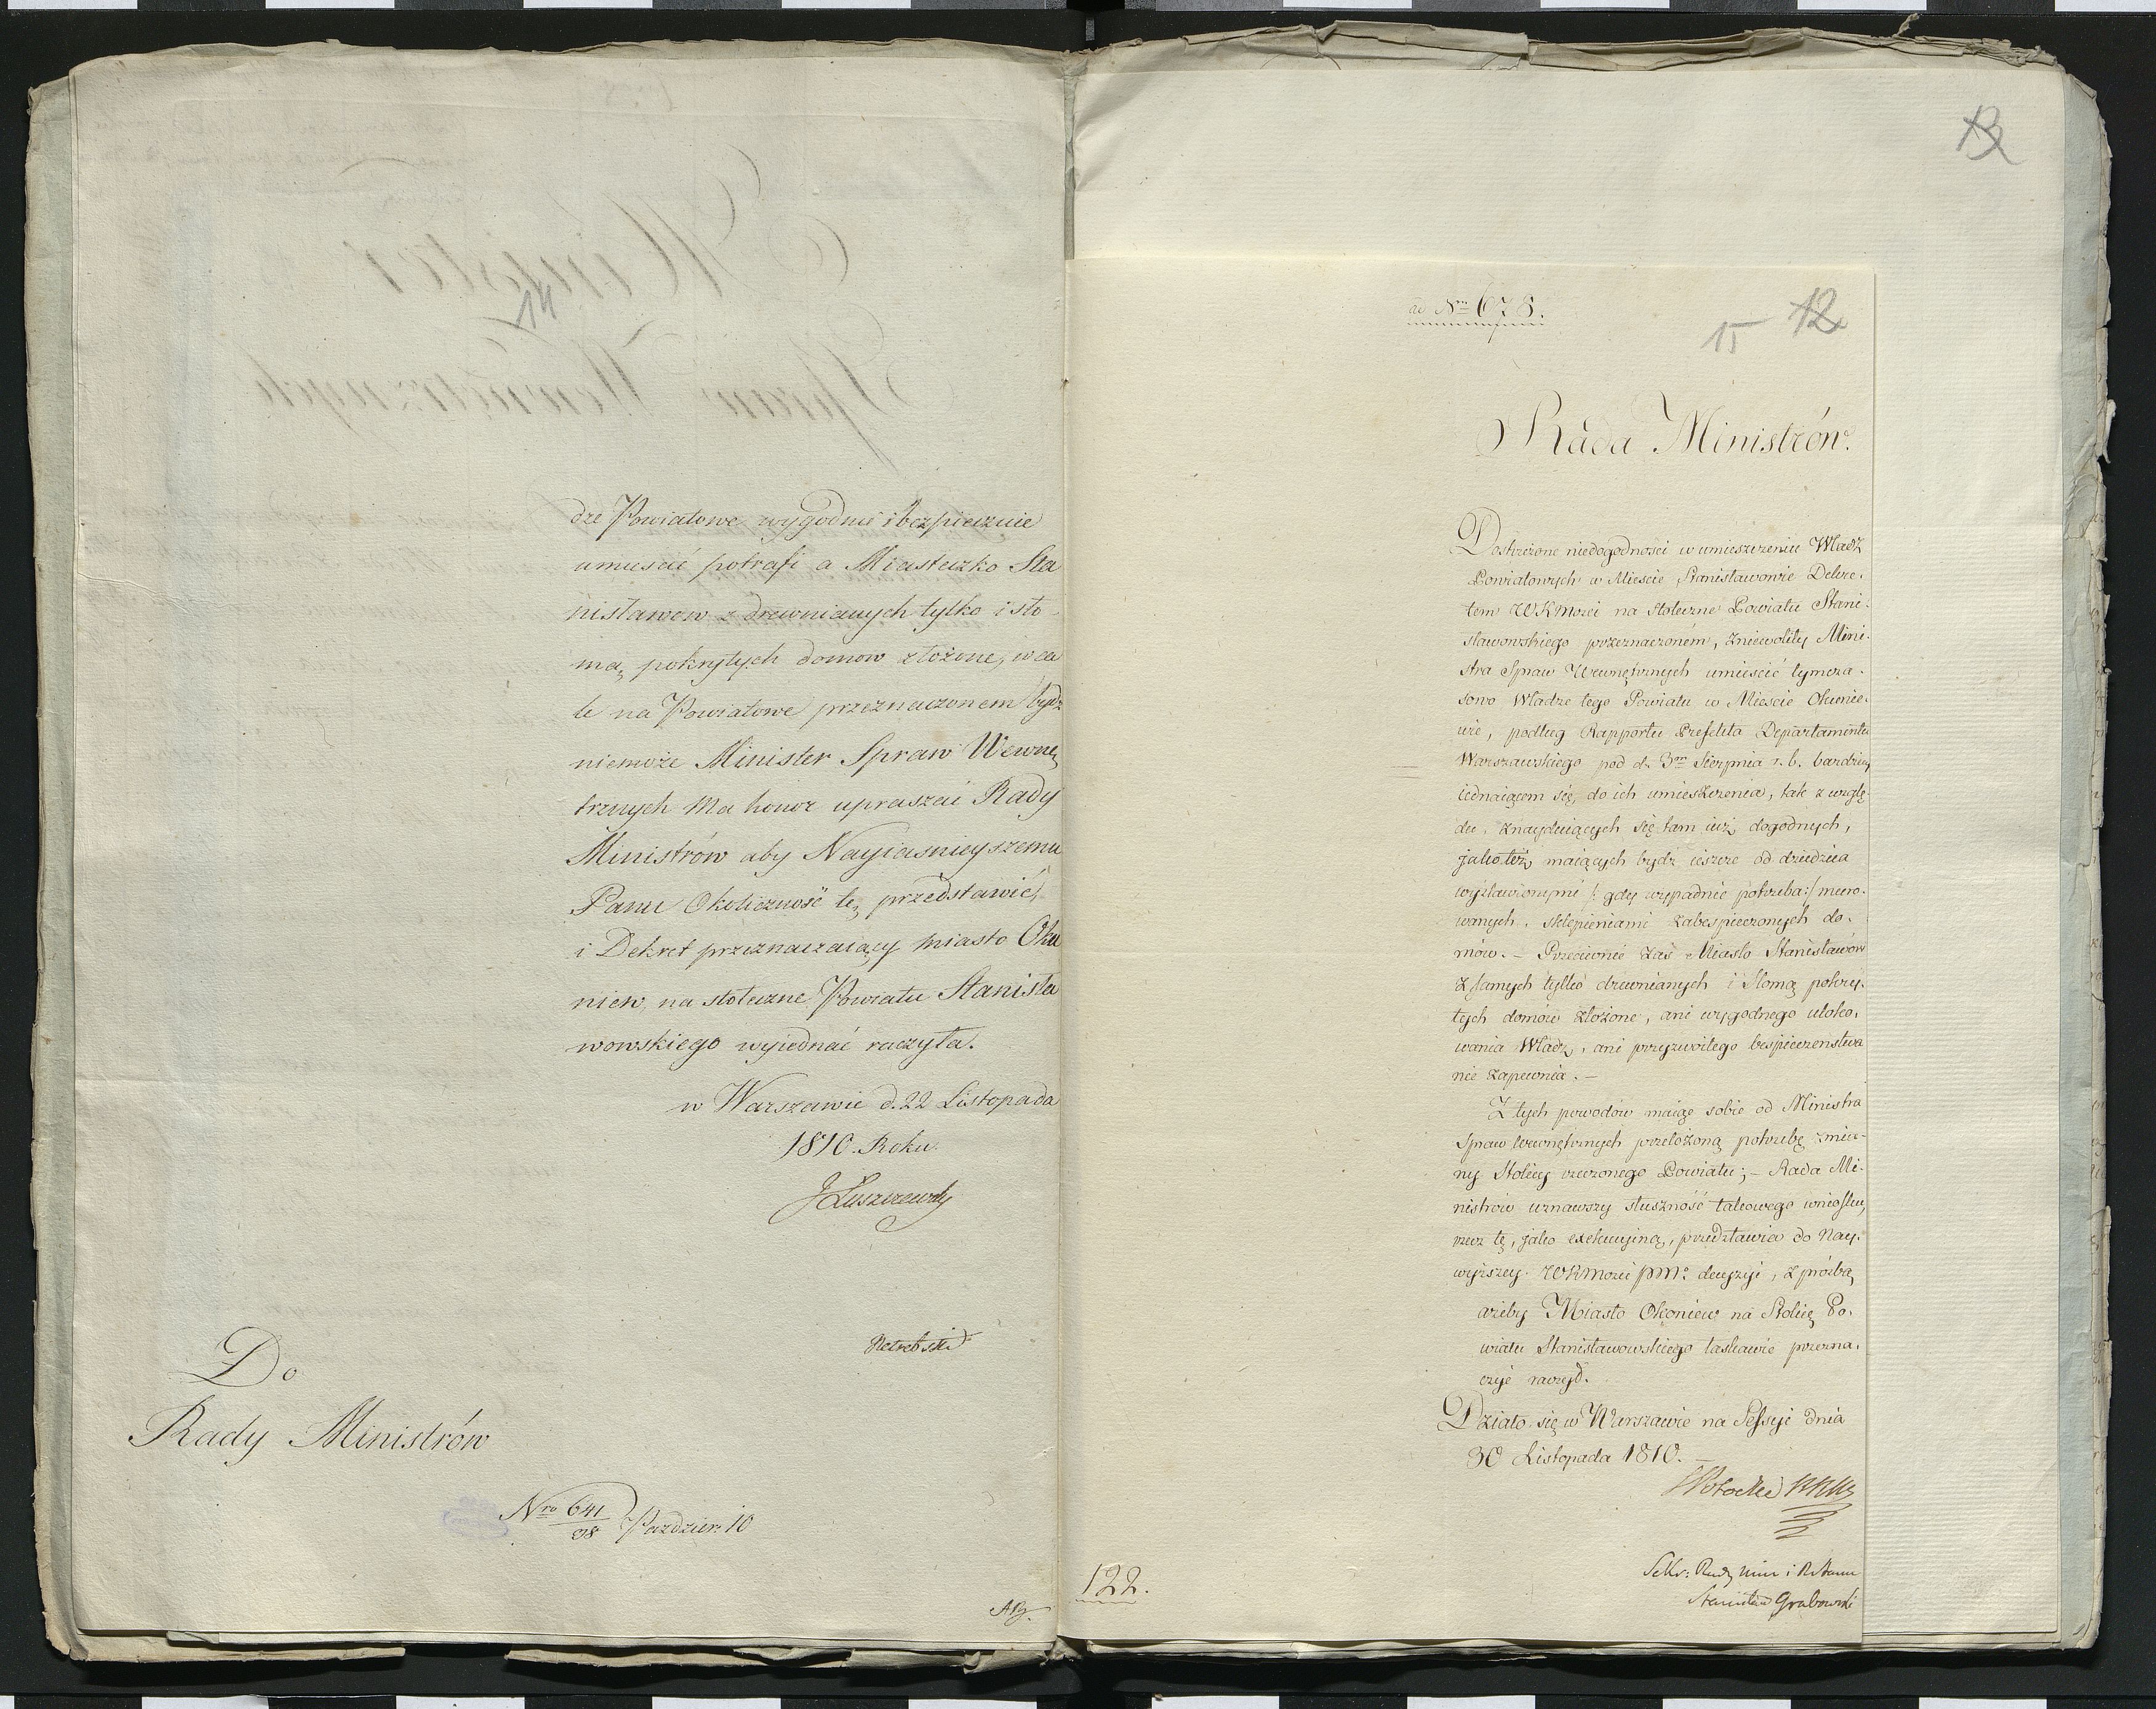 dze Powiatowe wygodnie i bezpiecznie
umieścić potrafi a Miasteczko Sta
nisławow z drewnianych tylko i sło
mą pokrytych domow złożone, wca
le na Powiatowe przeznaczonem bydź
niemoże Minister Spraw Wewnę
trznych ma honor upraszać Rady
Ministrów aby Nayiasnieyszemu
Panu Okoliczność tę przedstawić,
i Dekret przeznaczaiący miasto Oku
niew, na stołeczne Powiatu Stanisła
wowskiego wyiednać raczyła.
w Warszawie d. 22 Listopada
1810. Roku.
J Łuszczewski
Do
Rady Ministrów
Nro 641/98 Paździer. 10
13
ad Nrm 678.
15 12
Rada Ministrów.
Dostrzeżone niedogodnosci w umieszczeniu Władz
Powiatowych w Mieście Stanisławowie Dekre-
tem WKMości na stołeczne Powiatu Stani-
sławowskiego przeznaczoném, zniewoliły Mini-
stra Spraw Wewnętrznych umieścić tymcza-
sowo Władze tego Powiatu w Mieście Okunie-
wie, podług Rapportu Prefekta Departamentu
Warszawskiego pod d. 3m Sierpnia r. b. bardziey
iednaiącem się do ich umieszczenia, tak z wzglę
du, znayduiących się tam iuż dogodnych,
jako też maiących bydź ieszcze od dziedzica
wystawionymi /: gdy wypadnie potrzeba :/ muro-
wanych, sklepieniami zabespieczonych do-
mów. – Przeciwnie zaś Miasto Stanisławów
z samych tylko drewnianych i słomą pokry-
tych domów złożone, ani wygodnego uloko-
wania Władz, ani przyzwoitego bespieczenstwa
nie zapewnia. –
Z tych powodów maiąc sobie od Ministra
Spraw Wewnętrznych przełożoną potrzebę zmia-
ny Stolicy rzeczonego Powiatu; – Rada Mi-
nistrów uznawszy słuszność takowego wniosku,
rzecz tę, jako exekucyiną, przedstawia do Nay-
wyższey WKMości PM: decyzyi, z prośbą
ażeby Miasto Okoniew na Stolicę Po-
wiatu Stanisławowskiego łaskawie przezna-
czyć raczył.
Działo się w Warszawie na Sessyi dnia
30 Listopada 1810. –
Potocki
Sekr: Rady Min i R Stanu
Stanisław Grabowski
122.